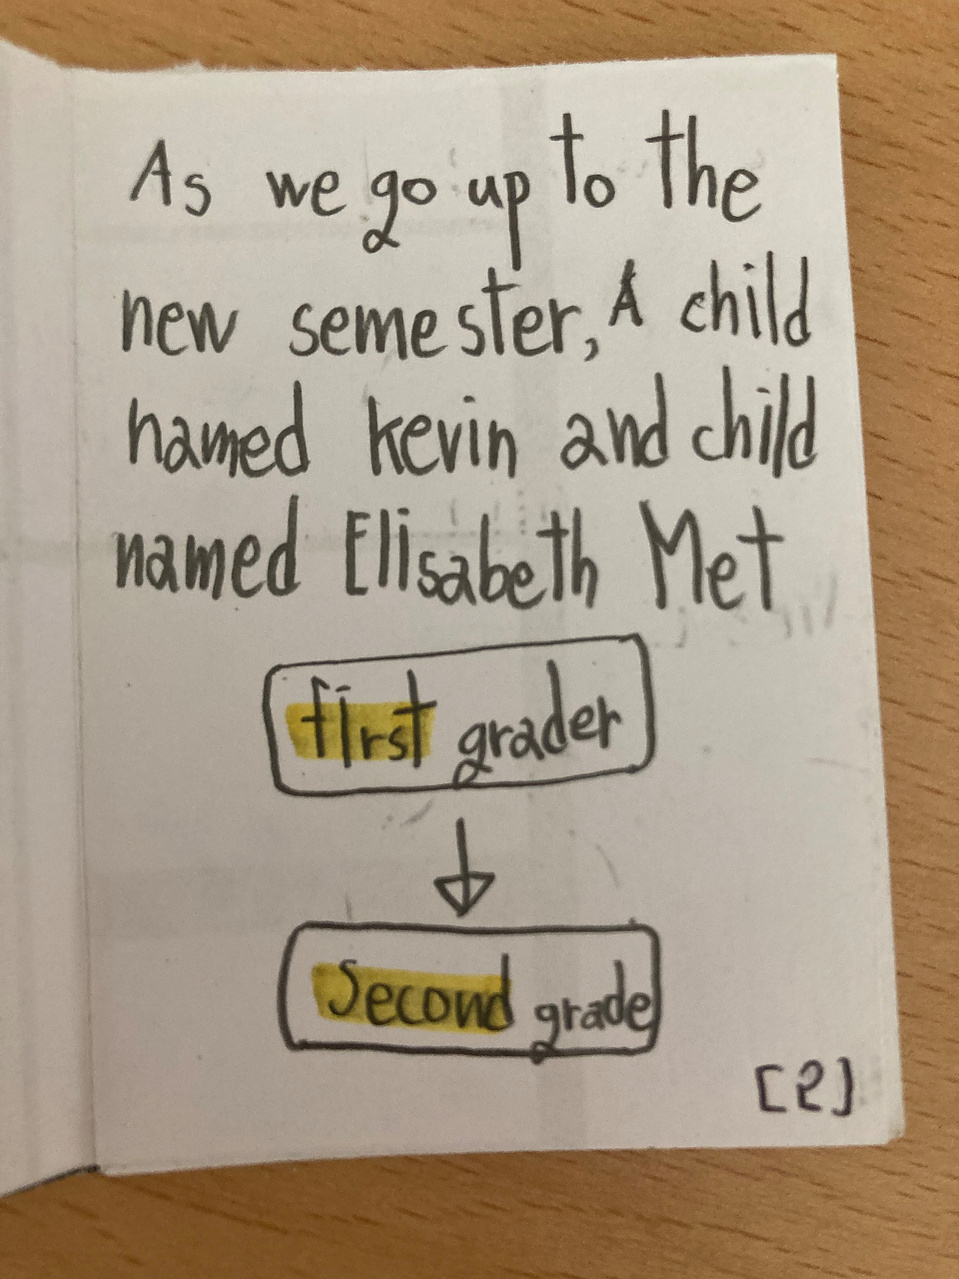 As we go up to the
new semester, A child
named kevin and child
named Elisabeth Met
first grader
Second grade
[2]